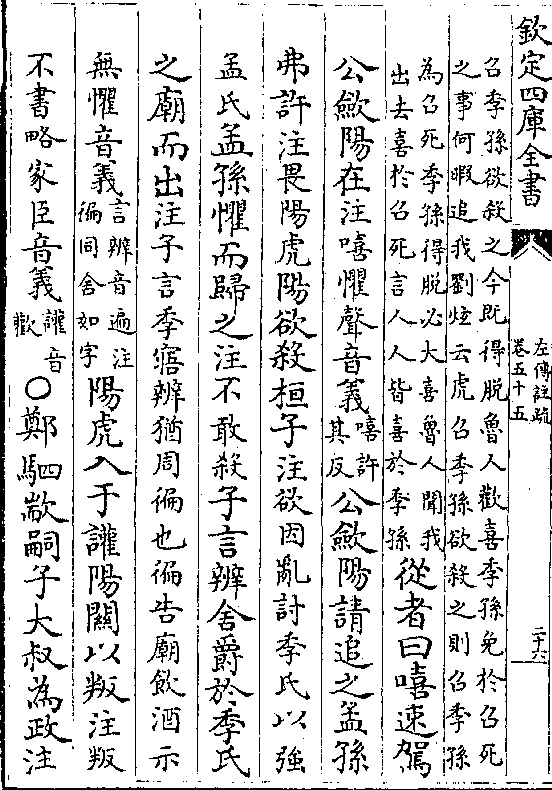 欽定四庫全書
左傳註疏
卷五十五
二十六
召季孫欲殺之今既得脫魯人歡喜季孫免於召死
之事何暇追我劉炫云虎召季孫欲殺之則召季孫
為召死季孫得脫必大喜魯人聞我
出去喜於召死言人人皆喜於季孫
從者曰嘻速駕
公歛陽在注嘻懼聲音義
嘻許
其反
公歛陽請追之孟孫
弗許注畏陽虎陽欲殺桓子注欲因亂討季氏以強
孟氏孟孫懼而歸之注不敢殺子言辨舍爵於季氏
之廟而出注子言季寤辨猶周徧也徧告廟飲酒示
無懼音義
言辨音遍注
徧同舍如字
陽虎入于讙陽關以叛注叛
不書略家臣音義
讙音
歡
○鄭駟歂嗣子大叔為政注